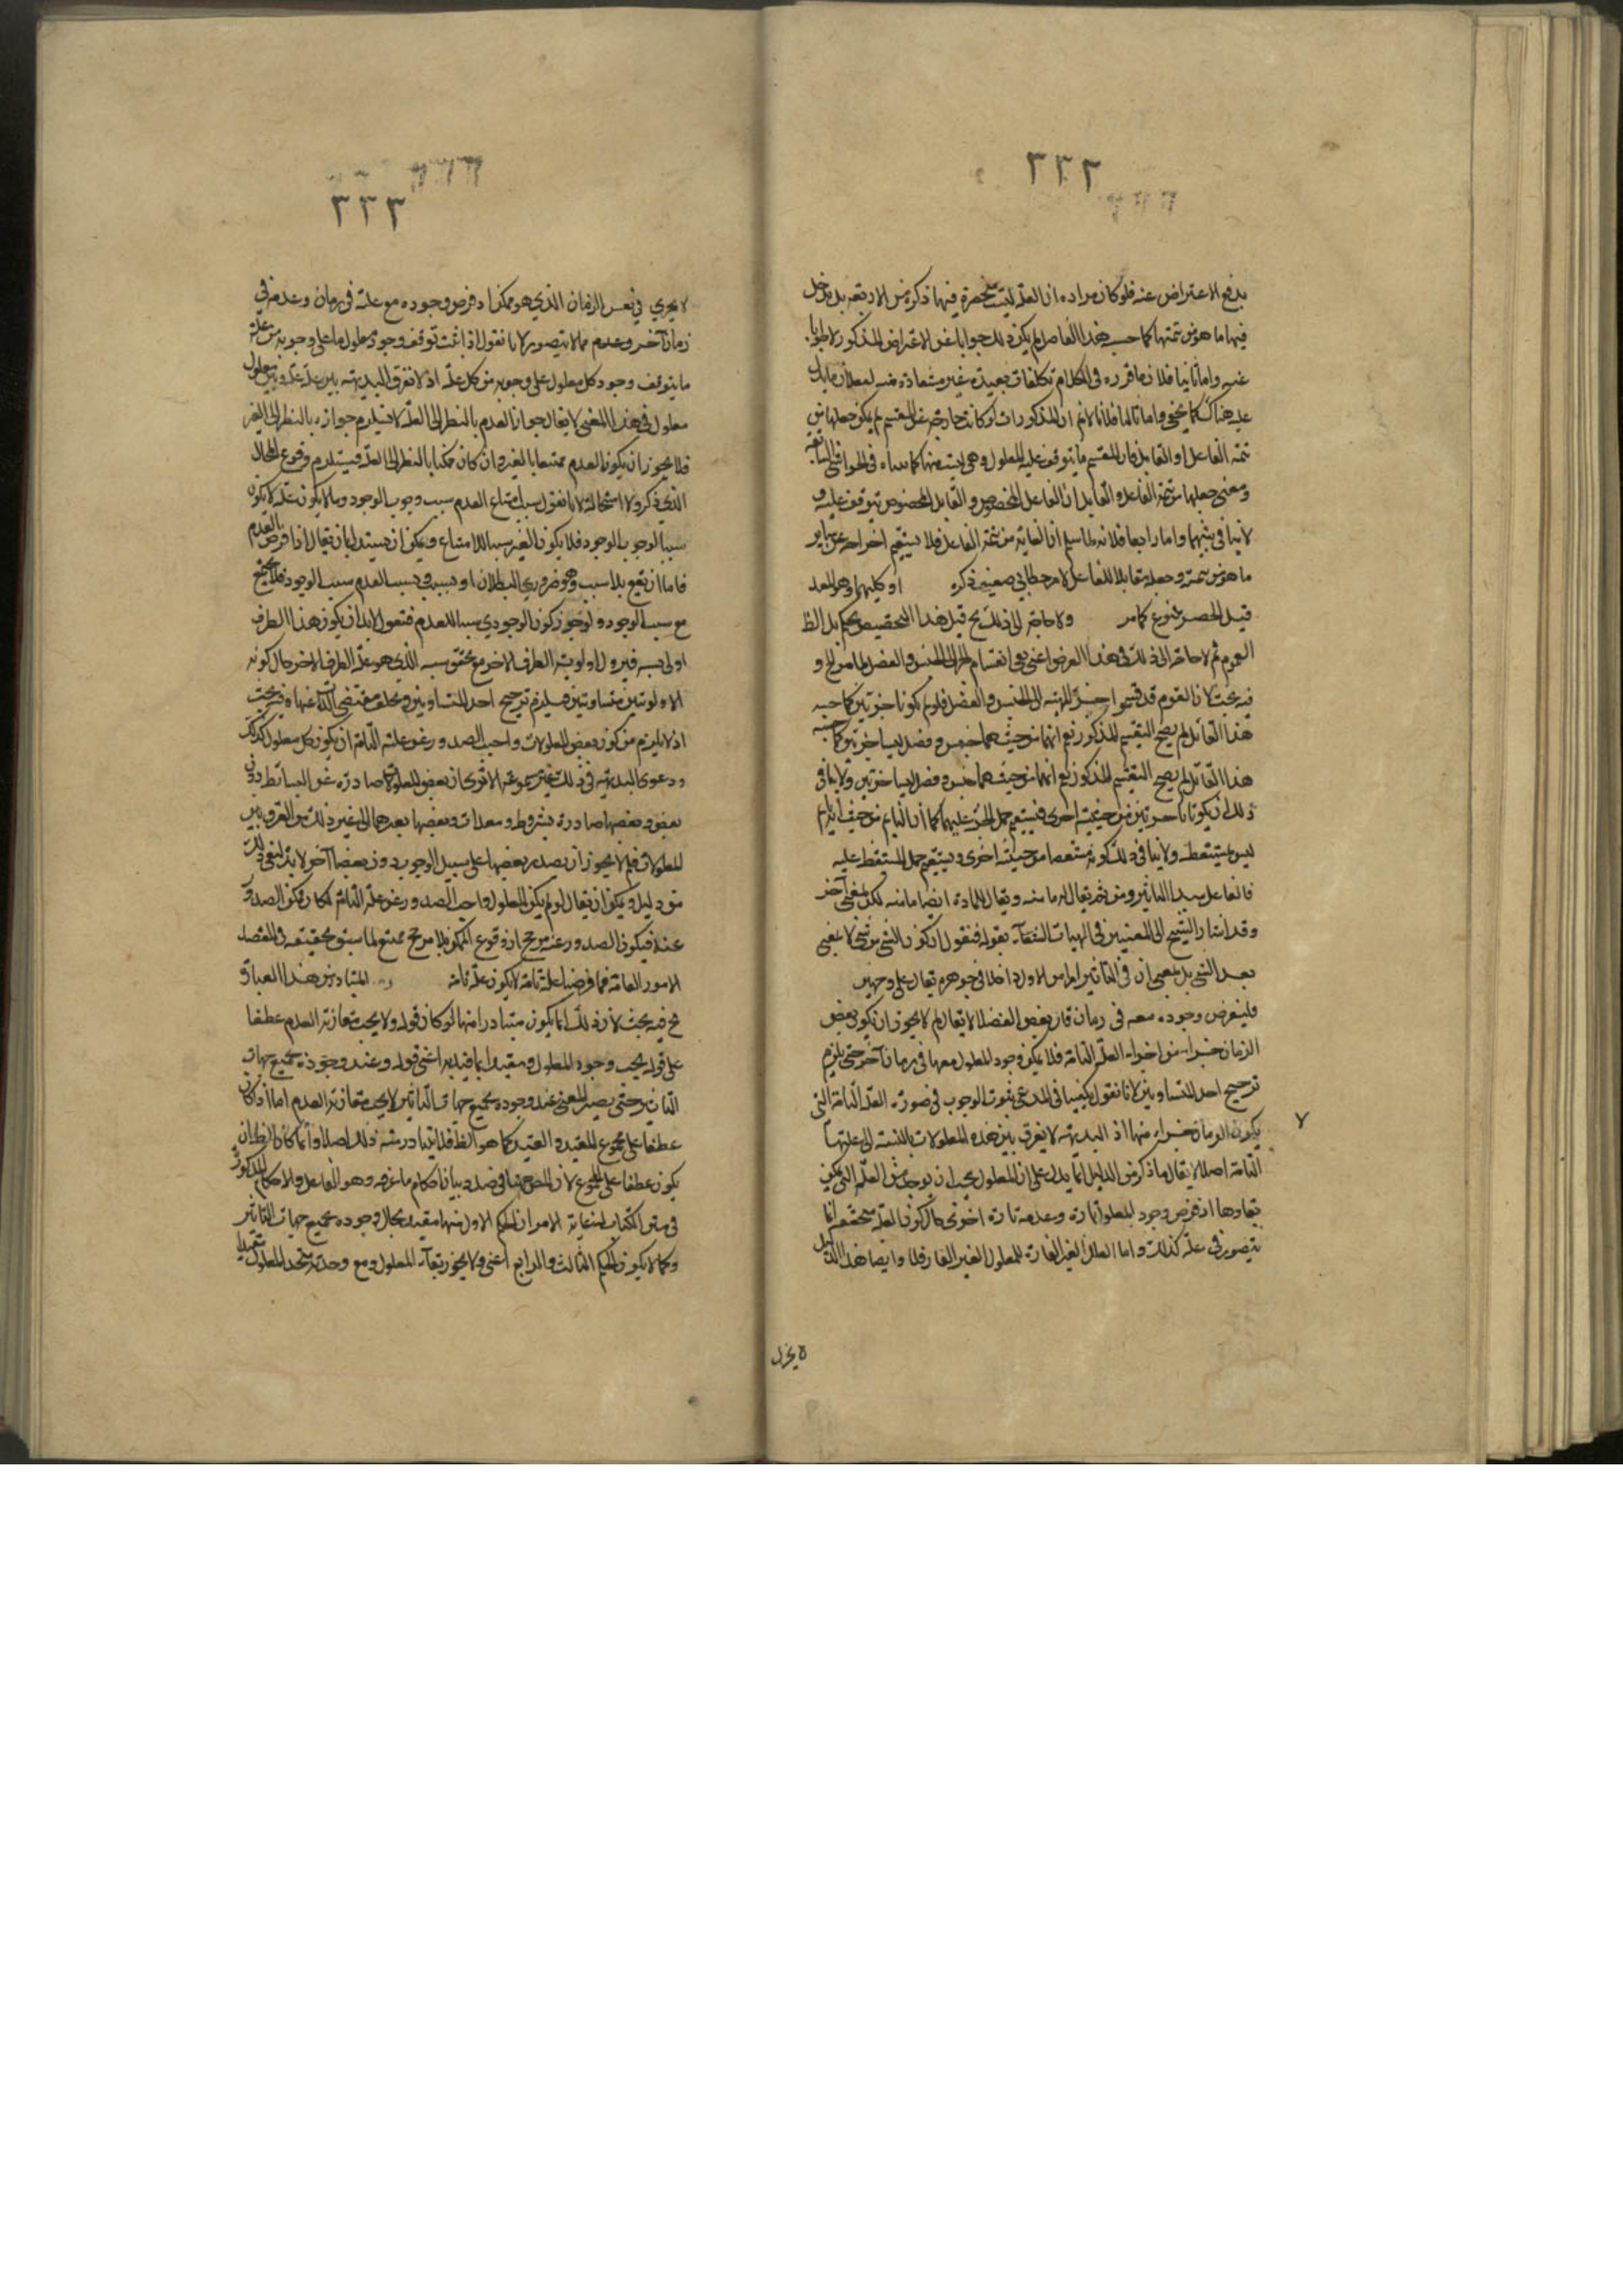 ٢٣٢
بدفع الاعتراض عنه فلو كان مراده ان العلة ليست منحصرة فيها ذكره من الاربعة بل يدخل
فيها ما هو من تتمتها كما حسبه هذا الفاضل لم يكن ذلك جوابا عن الاعتراض المذكور
عنه واما ثانيا فلان ما قرره في الكلام تكلفات بعيدة غير مستفادة منه
عليه هناك كما يخفى واما ثالثا فلانا لا نم ان المذكورات لو كانت خارجة عن المقسم لم يكن جعلها من
تتمة الفاعل او القابل فان المقسم ما يتوقف عليه المعلول وهي ليست منها كما سيأتي في الحواشي
ومعنى جعلها من تتمة الفاعل والقابل ان الفاعل المخصوص والقابل المخصوص يتوقف عليه و
واما رابعا فلانه لما سلم ان الغاية من تتمة الفاعل فلا يستقيم اخراجه عن
ما هو من تتمته وجعله مقابلا للفاعل ذكره او كليهما وهو المعد
قيل الحصر ممنوع كما مر ولا حاجة الى ذلك قيل هذا التخصيص
العموم ثم لا حاجة الى ذلك في هذا الغرض اعني انقسام الجزء الى الجنس والفصل
فيه بحث لان القوم قد قسموا جزء المهية الى الجنس والفصل فلو لم يكونا جزئين كما حسبه
هذا القائل لم يصح التقسيم المذكور نعم انهما من حيث هما جنس وفصل ليسا جزئين كما حسبه
هذا القائل لم يصح التقسيم المذكور نعم انهما من حيث هما جنس وفصل ليسا جزئين ولا ينافي
ذلك ان يكونا جزئين من حيثية اخرى فيستقيم حمل الجزء عليهما كما ان النائم من حيث انه نائم
ليس بمستيقظ ولا ينافي ذلك كونه من حيثية اخرى ويستقيم حمل المستيقظ عليه
فالفاعل مبدأ التاثير ومن ثم يقال له ما منه ويقال للمادة ايضا ما منه لكن لمعنى آخر
وقد اشار الشيخ الى المعنيين في الهيات الشفاء بقوله فنقول ان كون الشئ من شئ لا بمعنى
بعد الشئ بل بمعنى ان في الثاني امرا من الاول داخلا في جوهره يقال على وجهين
فلنفرض وجوده معه في زمان قال بعض الفضلا لا يقال لم لا يجوز ان يكون بعض
الزمان جزءا من اجزاء العلة التامة فلا يمكن وجود المعلول معها في زمان آخر حتى يلزم
ترجيح احد المتساويين لانا نقول يكفينا في المدعى ثبوت الوجوب في صورة العلة التامة التي
يكون الزمان جزءا منها اذ البديهة لا يفرق بين هذه المعلولات بالنسبة الى علتها
٧
التامة اصلا لا يقال ما ذكر من الدليل انما يدل على ان المعلول يجب ان يوجد من العلة التي يمكن
بقاءها اذ فرض وجود المعلول تارة وعدمه تارة اخرى حال كون العلة متحققة انما
يتصور في علة كذلك واما العلل الغير القارة للمعلول الغير القار فلا وايضا هذا الدليل
لا يجري
٢٣٣
لا يجري في نفس الزمان الذي هو ممكن اذ فرض وجوده مع علته في زمان وعدمه في
زمان آخر وعدم مما لا يتصور لانا نقول اذا ثبت توقف وجود معلول ما على وجوبه من علة
ما يتوقف وجود كل معلول على وجوبه من كل علة اذ لا تفرق البديهة بين علة وعلة وبين معلول
معلول في هذا المعنى لا يقال جواز العدم بالنظر الى العلة لا يستلزم جوازه بالنظر الى الغير
فلا يجوز ان يكون العدم ممتنعا بالغير وان كان ممكنا بالنظر الى العلة فيستلزم وقوع المحال
الذي ذكر ولا استحالة لانا نقول سبب امتناع العدم سبب وجوب الوجود وما لا يكون علة لا يكون
سببا لوجوب الوجود فلا يكون الغير سببا للامتناع ويمكن ان يستدل بان يقال اذا فرض العدم
فاما ان يقع بلا سبب وهو ضروري البطلان او بسبب وسبب العدم سبب الوجود فلا يجتمع
مع سبب الوجود ولو جوز كون الوجودي سببا للعدم فنقول لابد ان يكون هذا الطرف
اولى بسببه فيزول اولوية الطرف الاخر مع تحقق سببه الذي هو علة الطرف الاخر حال كونه
الاولويتين متساويتين فيلزم ترجيح احد المتساويين وتخلف مقتضى الذات عنها وفيه بحث
اذ لا يلزم من كون بعض المعلولات واجب الصدور عن علته التامة ان يكون كل معلول كذلك
ودعوى البديهة في ذلك غير مسموعة الا ترى ان بعض المعلولات صادرة عن البسائط دون
بعض وبعضها صادرة بشروط ومعدات وبعضها بعدهما الى غير ذلك من الفرق بين
المعلولات فلم لا يجوز ان يصدر بعضها على سبيل الوجوب دون بعضها آخر لابد لنفي ذلك
من دليل ويمكن ان يقال لو لم يكن المعلول واجب الصدور عن علته التامة لكان ممكن الصدور
عنه فيكون الصدور عنه مرجح اذ وقوع الممكن بلا مرجح ممتنع لما سبق تحقيقه في المقصد
الامور العامة فما فرضناه علة تامة لا يكون علة تامة المتبادر من هذا العبارة
فيه بحث لان ذلك انما يكون متبادرا منها لو كان قوله ولا يجب مقارنة العدم عطفا
على قوله يجب وجود المعلول ومقيدا بما قيد به اعني قوله وعند وجوده بجميع جهات
التاثير حتى يصير المعنى عند وجوده بجميع جهات التاثير لا يجب مقارنة العدم اما اذا كان
عطفا على مجموع المقيد والقيد كما هو الظ فلا يتبادر منه ذلك اصلا وانما كان الظ ان
يكون عطفا على المجموع لان المص ههنا في صدد بيان احكام ما عرفه وهو الفاعل والاحكام المذكورة
في متن الكتاب اربعة الامر ان الحكم الاول منها مقيد بحال وجوده بجميع جهات التاثير
وكما لا يكون الحكم الثالث والرابع اعني ولا يجوز بقاء المعلول ومع وحدته يتحد المعلول